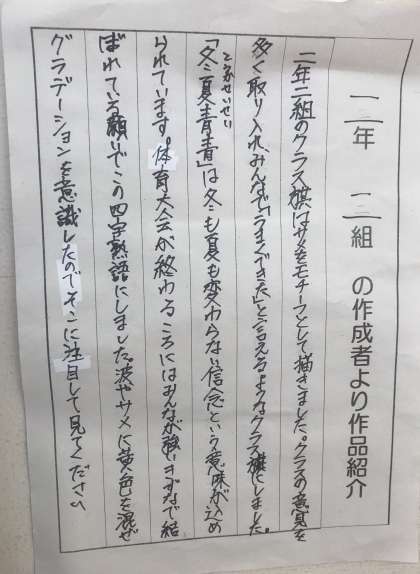 二年 二組 の作成者より作品紹介
二年二組のクラス旗はサメをモチーフとして描きました。クラスの意見を
多く取り入れ、みんなで「うまくできた」と言えるようなクラス旗にしました。
とうかせいせい
「冬夏青青」は冬も夏も変わらない信念という意味が込め
られています。体育大会が終わるころにはみんなが強いきずなで結
ばれている願いでこの四字熟語にしました。波やサメに黄色を混ぜ
グラデーションを意識したのでそこに注目して見てください